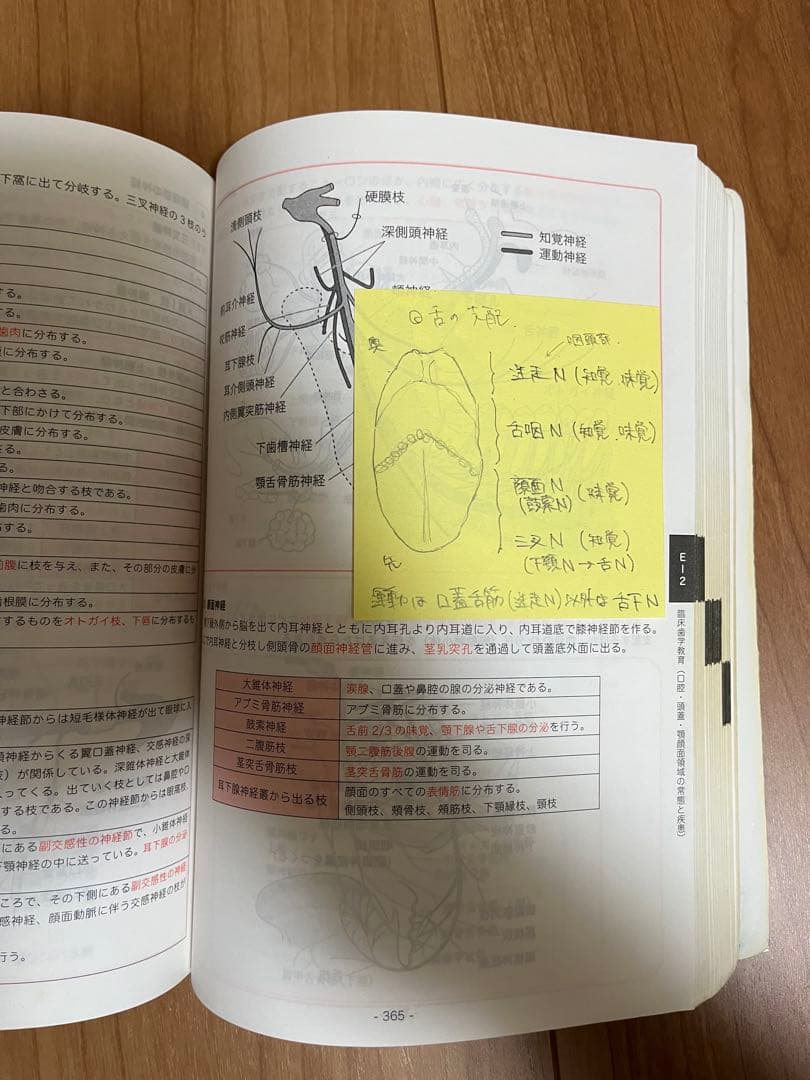 下窩に出て分岐する。三叉神経の3枝のう
する。
する。
歯肉に分布する。
に分布する。
と合わさる。
下部にかけて分布する。
皮膚に分布する。
る。
神経と吻合する枝である。
歯肉に分布する。
する。
前腹に枝を与え、また、その部分の皮膚に分
歯根膜に分布する。
するものをオトガイ枝、下唇に分布するも
神経節からは短毛様体神経が出て眼球に入
頭神経からくる翼口蓋神経、交感神経の深
）が関係している。深錐体神経と大錐体
ってくる。出ていく枝としては鼻腔や口
する枝である。この神経節からは眼窩枝、
る。
にある副交感性の神経節で、小錐体神経
下顎神経の中に送っている。耳下腺の分泌
ころで、その下側にある副交感性の神経
感神経、顔面動脈に伴う交感神経の枝が
行う。
硬膜枝
浅側頭枝
深側頭神経
知覚神経
運動神経
前耳介神経
咬筋神経
耳下腺枝
耳介側頭神経
内側翼突筋神経
下歯槽神経
顎舌骨筋神経
舌の支配
奥
咽頭部
迷走N(知覚、味覚)
舌咽N(知覚、味覚)
顔面N
(鼓索N)
(味覚)
三叉N(知覚)
(下顎N→舌N)
先
運動は口蓋舌筋(迷走N)以外は舌下N
顔面神経
下縁外側から脳を出て内耳神経とともに内耳孔より内耳道に入り、内耳道底で膝神経節を作る。
で内耳神経と分枝し側頭骨の顔面神経管に進み、茎乳突孔を通過して頭蓋底外面に出る。
大錐体神経 涙腺、口蓋や鼻腔の腺の分泌神経である。
アブミ骨筋神経 アブミ骨筋に分布する。
鼓索神経 舌前2/3の味覚、顎下腺や舌下腺の分泌を行う。
二腹筋枝 顎二腹筋後腹の運動を司る。
茎突舌骨筋枝 茎突舌骨筋の運動を司る。
耳下腺神経叢から出る枝 顔面のすべての表情筋に分布する。
側頭枝、頬骨枝、頬筋枝、下顎縁枝、頸枝
E-I-2
臨床歯学教育(口腔・頭蓋・顎顔面領域の常態と疾患)
- 365 -